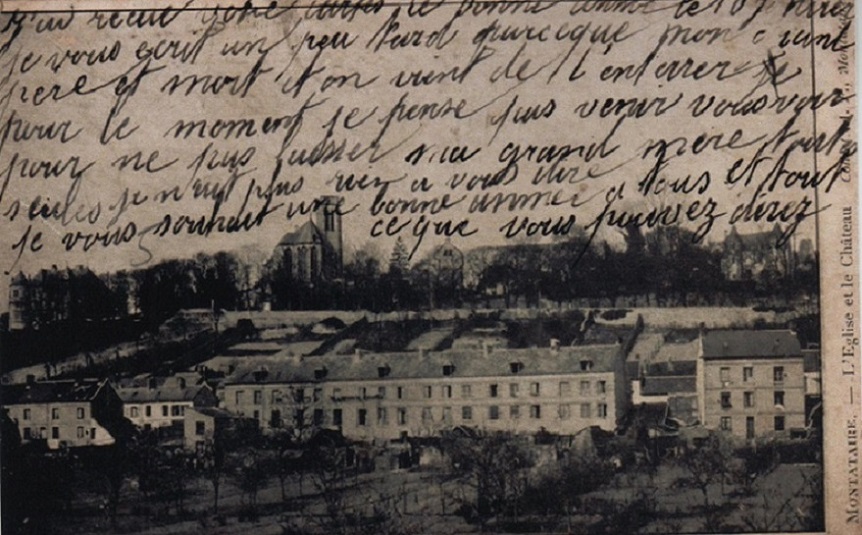 reçu votre bonne
je vous ecrit un peu tard parceque mon
pere et mort et on vient de l'enterrer je
pour le moment je pense pas venir vous voir
pour ne pas laisser grand mere tout
seules je n'ait plus rien a vous dire
je vous souhait une bonne annee a tous et tout
ce que vous pouvez direz
MONTATAIRE. — L'Eglise et le Château